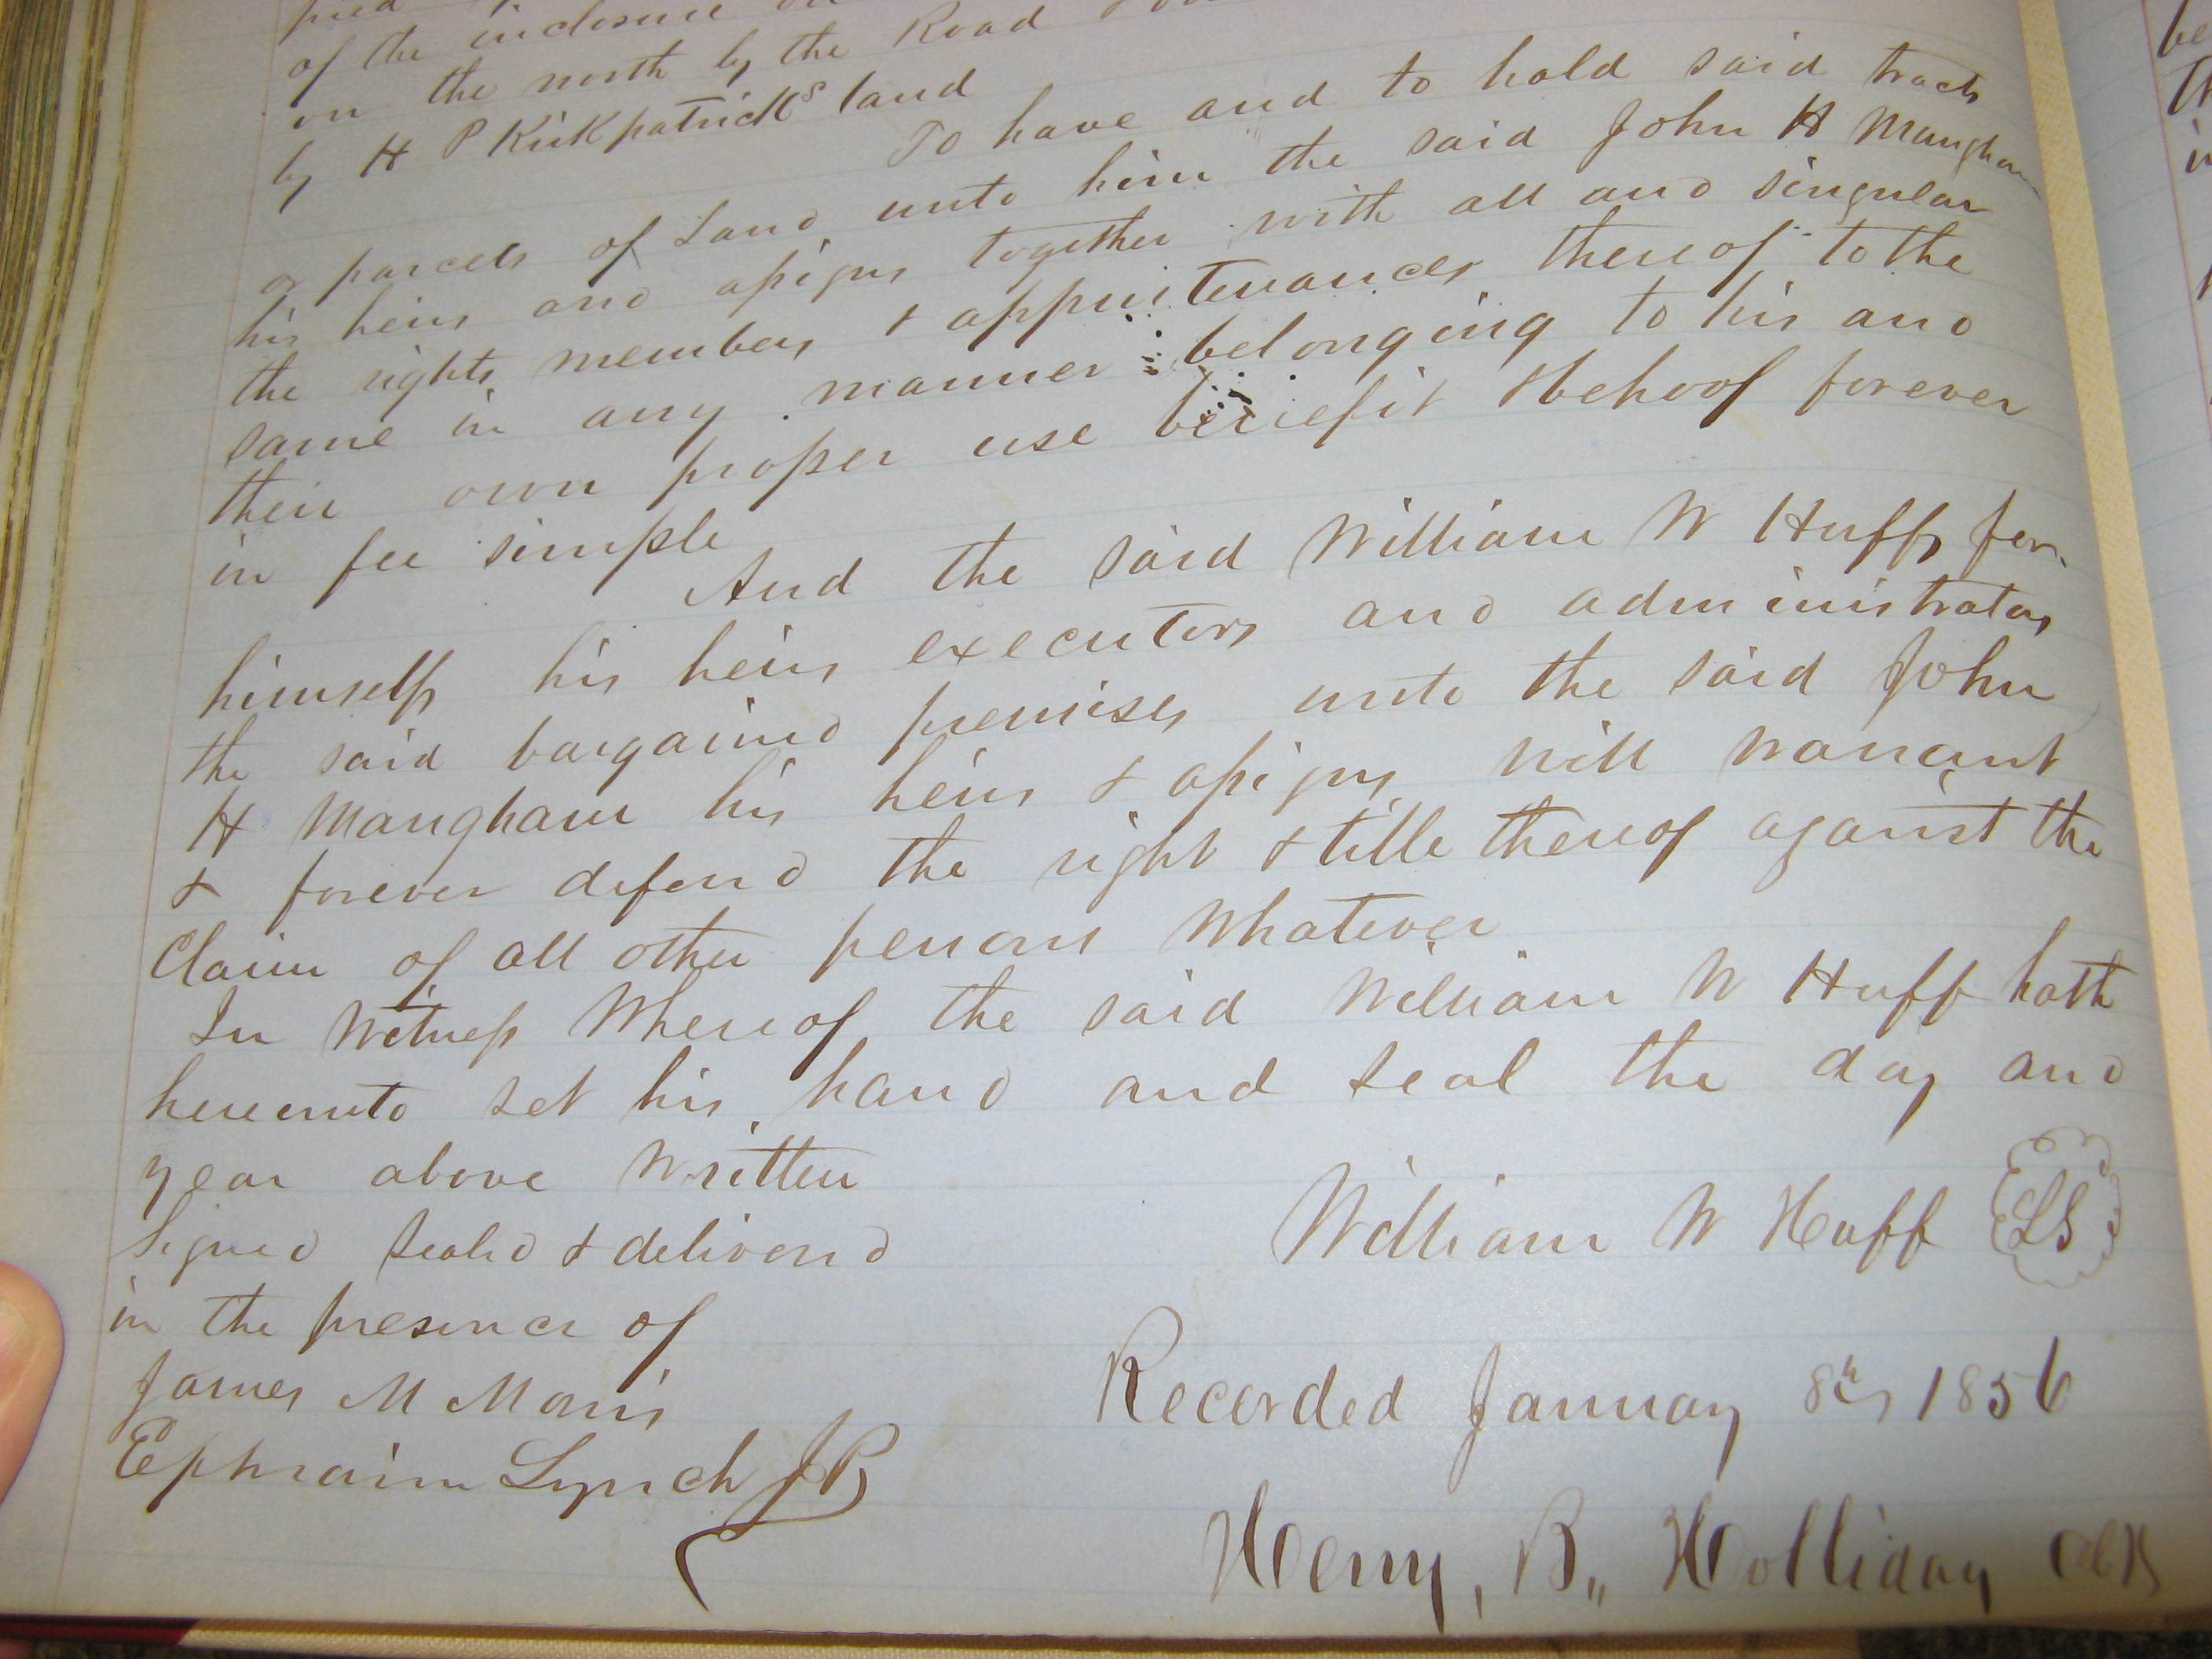 of the inclosure
on the north by the Road
by H P Kirkpatricks land
To have and to hold said tracts
or parcels of Land unto him the said John H Mangham
his heirs and assigns together with all and singular
the rights members & appurtenances thereof to the
same in any manner belonging to his and
their own proper use benefit & behoof forever
in fee simple
And the said William W Huff for
himself his heirs executors and administrators
the said bargained premises unto the said John
H Mangham his heirs & assigns will warrant
& forever defend the right & title thereof against the
Claim of all other persons whatever
In Witness Whereof the said William W Huff hath
hereunto set his hand and seal the day and
year above written
Signed Sealed & delivered
William W Huff LS
in the presence of
James M Morris
Recorded January 8th 1856
Ephraim Lynch JP
Henry, B,, Holliday Clk